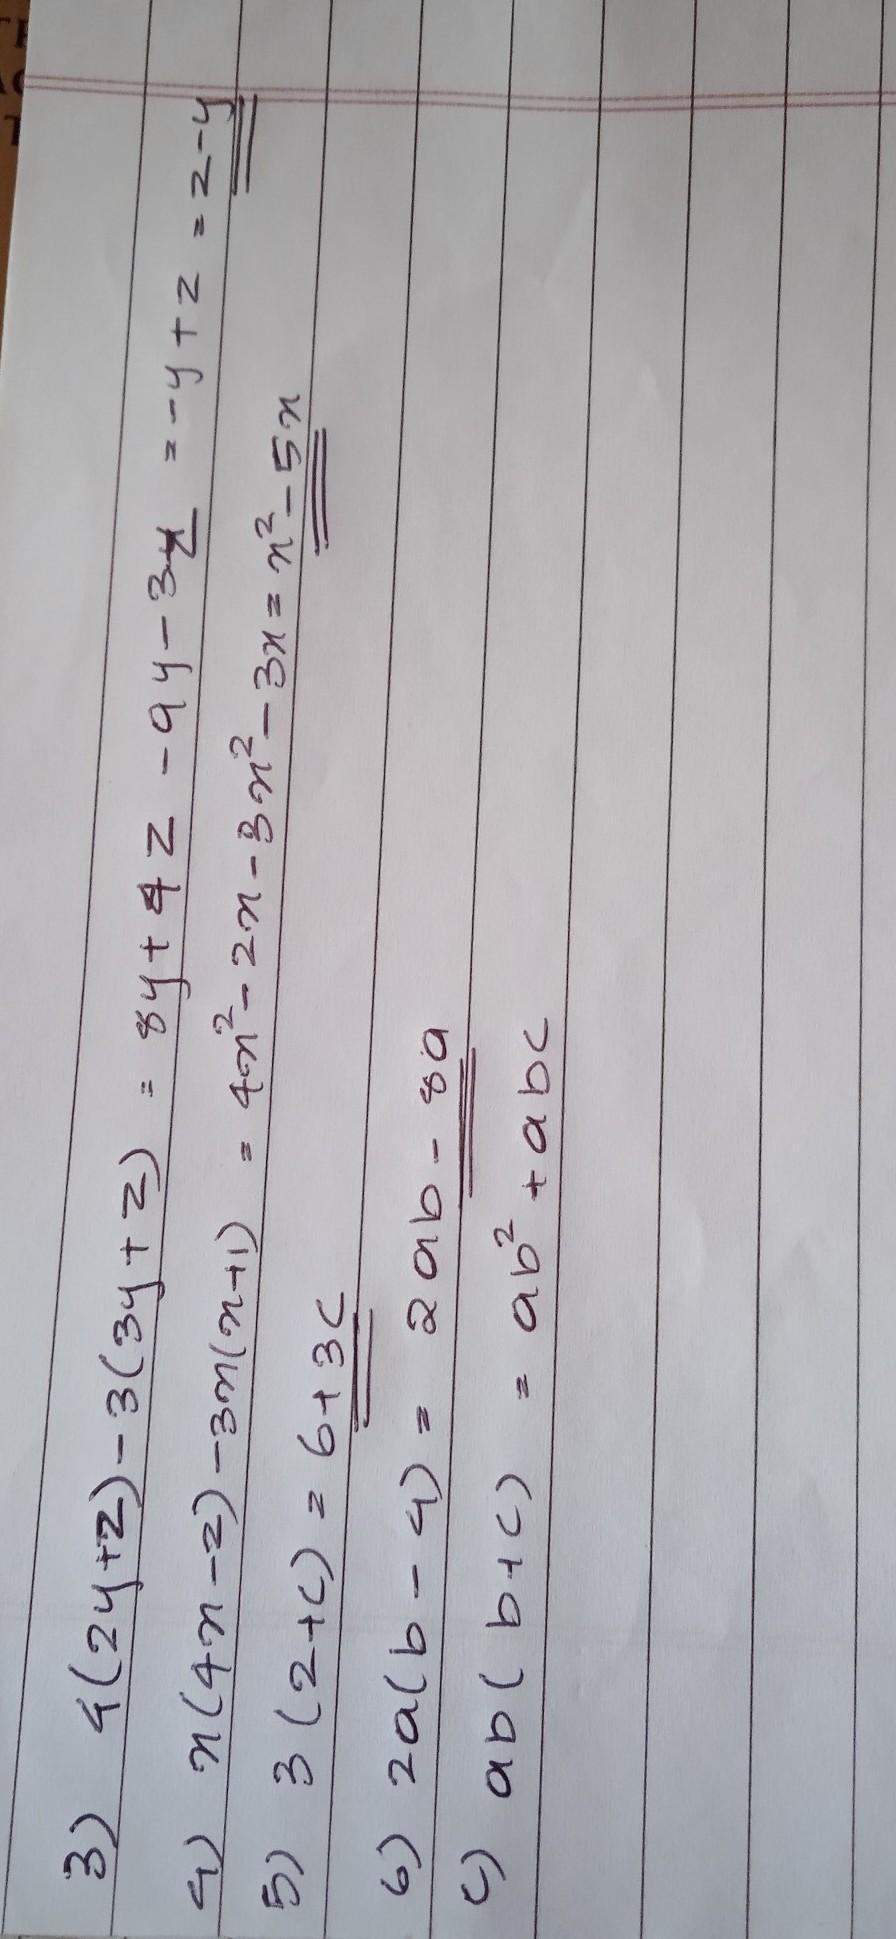 3) 4(2y+z)-3(3y+z) = 8y+4z-9y-3z = -y+z = z-y
4) x(4x-2)-3x(x+1) = 4x²-2x-3x²-3x = x²-5x
5) 3(2+c) = 6+3c
6) 2a(b-4) = 2ab-8a
ab(b+c) = ab²+abc